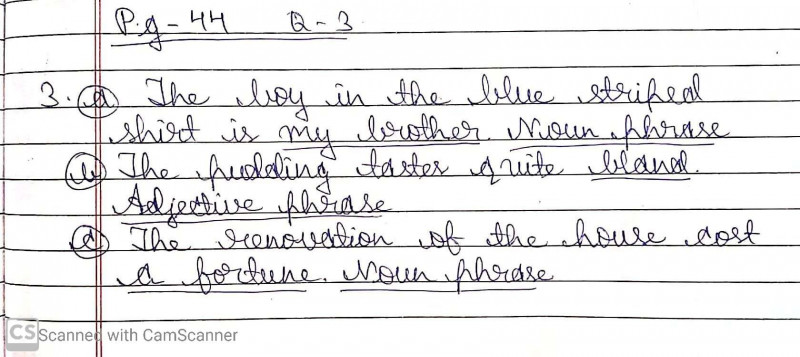 P.g - 44 Q - 3
3. (a) The boy in the blue striped
shirt is my brother. Noun phrase
(b) The pudding tastes quite bland.
Adjective phrase
(c) The renovation of the house cost
a fortune. Noun phrase
CS Scanned with CamScanner